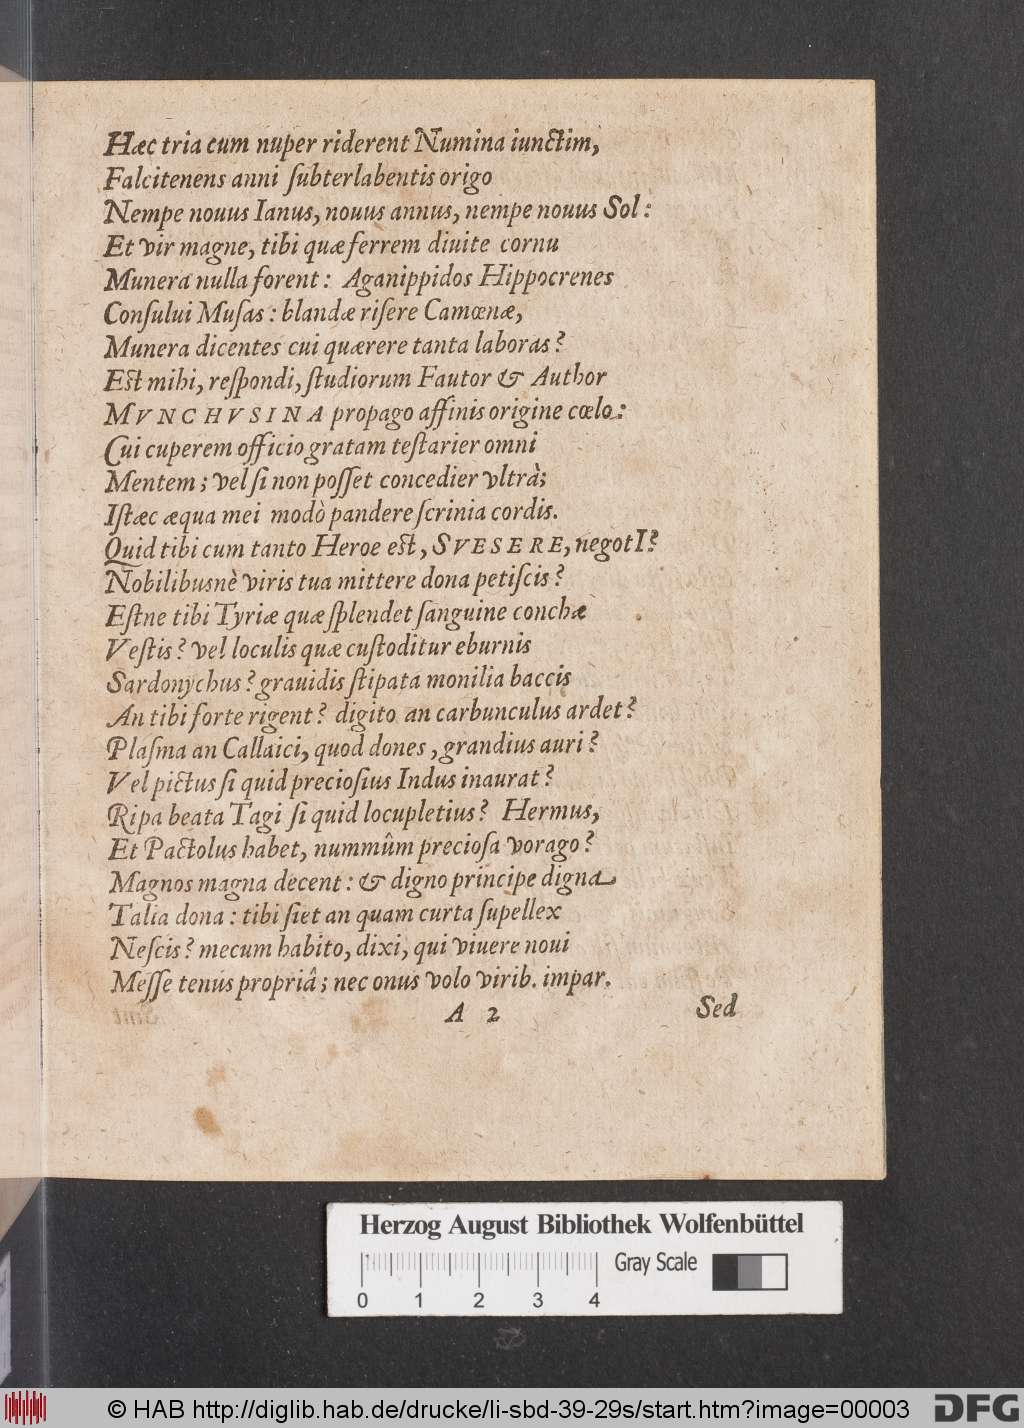 Hæc tria cum nuper riderent Numina iunctim,
Falcitenens anni ſubterlabentis origo
Nempe nouus Ianus, nouus annus, nempe nouus Sol:
Et vir magne, tibi quæ ferrem diuite cornu
Munera nulla forent: Aganippidos Hippocrenes
Conſului Muſas: blandæ riſere Camœnæ,
Munera dicentes cui quærere tanta laboras?
Est mihi, reſpondi, ſtudiorum Fautor & Author
MVNCHVSINA propago affinis origine cœlo:
Cui cuperem officio gratam teſtarier omni
Mentem; vel ſi non poſſet concedier vltrà;
Iſtæc æqua mei modò pandere ſcrinia cordis.
Quid tibi cum tanto Heroe est, SVESERE, negotI?
Nobilibusnè viris tua mittere dona petiſcis?
Eſtne tibi Tyriæ quæ ſplendet ſanguine conchæ
Veſtis? vel loculis quæ cuſtoditur eburnis
Sardonychus? grauidis ſtipata monilia baccis
An tibi forte rigent? digito an carbunculus ardet?
Plaſma an Callaici, quod dones, grandius auri?
Vel pictus ſi quid precioſius Indus inaurat?
Ripa beata Tagi ſi quid locupletius? Hermus,
Et Pactolus habet, nummûm precioſa vorago?
Magnos magna decent: & digno principe digna
Talia dona: tibi ſiet an quam curta ſupellex
Neſcis? mecum habito, dixi, qui viuere noui
Meſſe tenus propriâ; nec onus volo virib. impar.
A 2 Sed
Herzog August Bibliothek Wolfenbüttel
Gray Scale
0 1 2 3 4
© HAB http://diglib.hab.de/drucke/li-sbd-39-29s/start.htm?image=00003
DFG